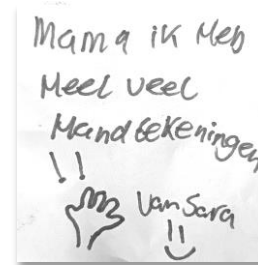 Mama ik Heb
Heel veel
Handtekeningen
!!
van Sara